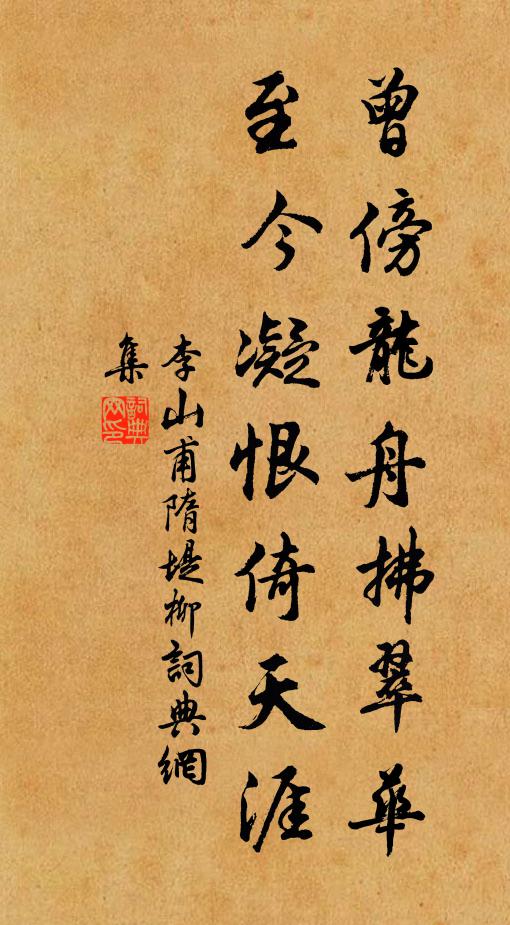 曾傍龍舟拂翠華
至今凝恨倚天涯
李山甫隋堤柳詞典網
集
詞典
网印